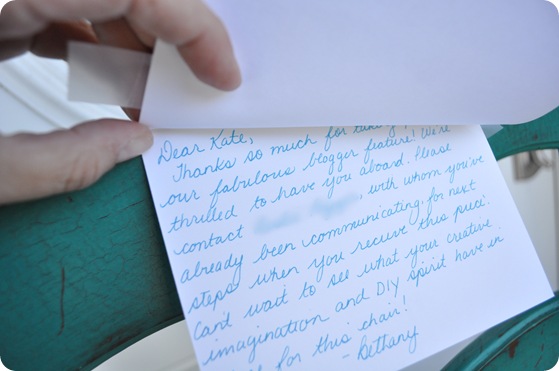 Dear Kate,
Thanks so much for taking
our fabulous blogger feature! We're
thrilled to have you aboard. Please
contact , with whom you've
already been communicating, for next
steps when you recieve this piece.
Can't wait to see what your creative
imagination and DIY spirit have in
for this chair!
- Bethany